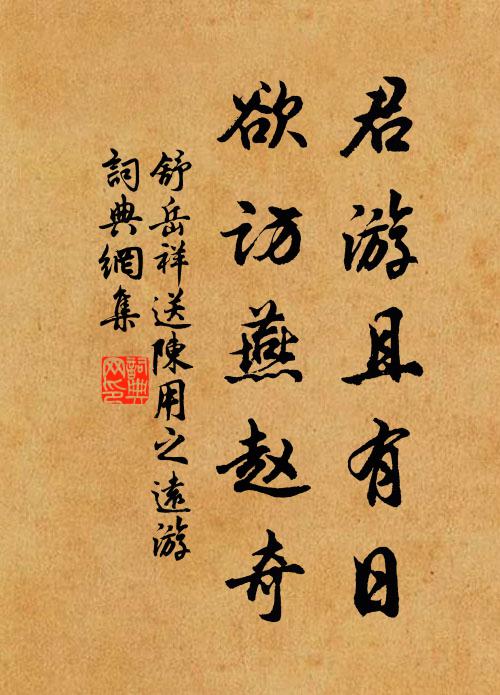 君游且有日
欲访燕赵奇
舒岳祥送陳用之遠游
詞典網集
詞典网印